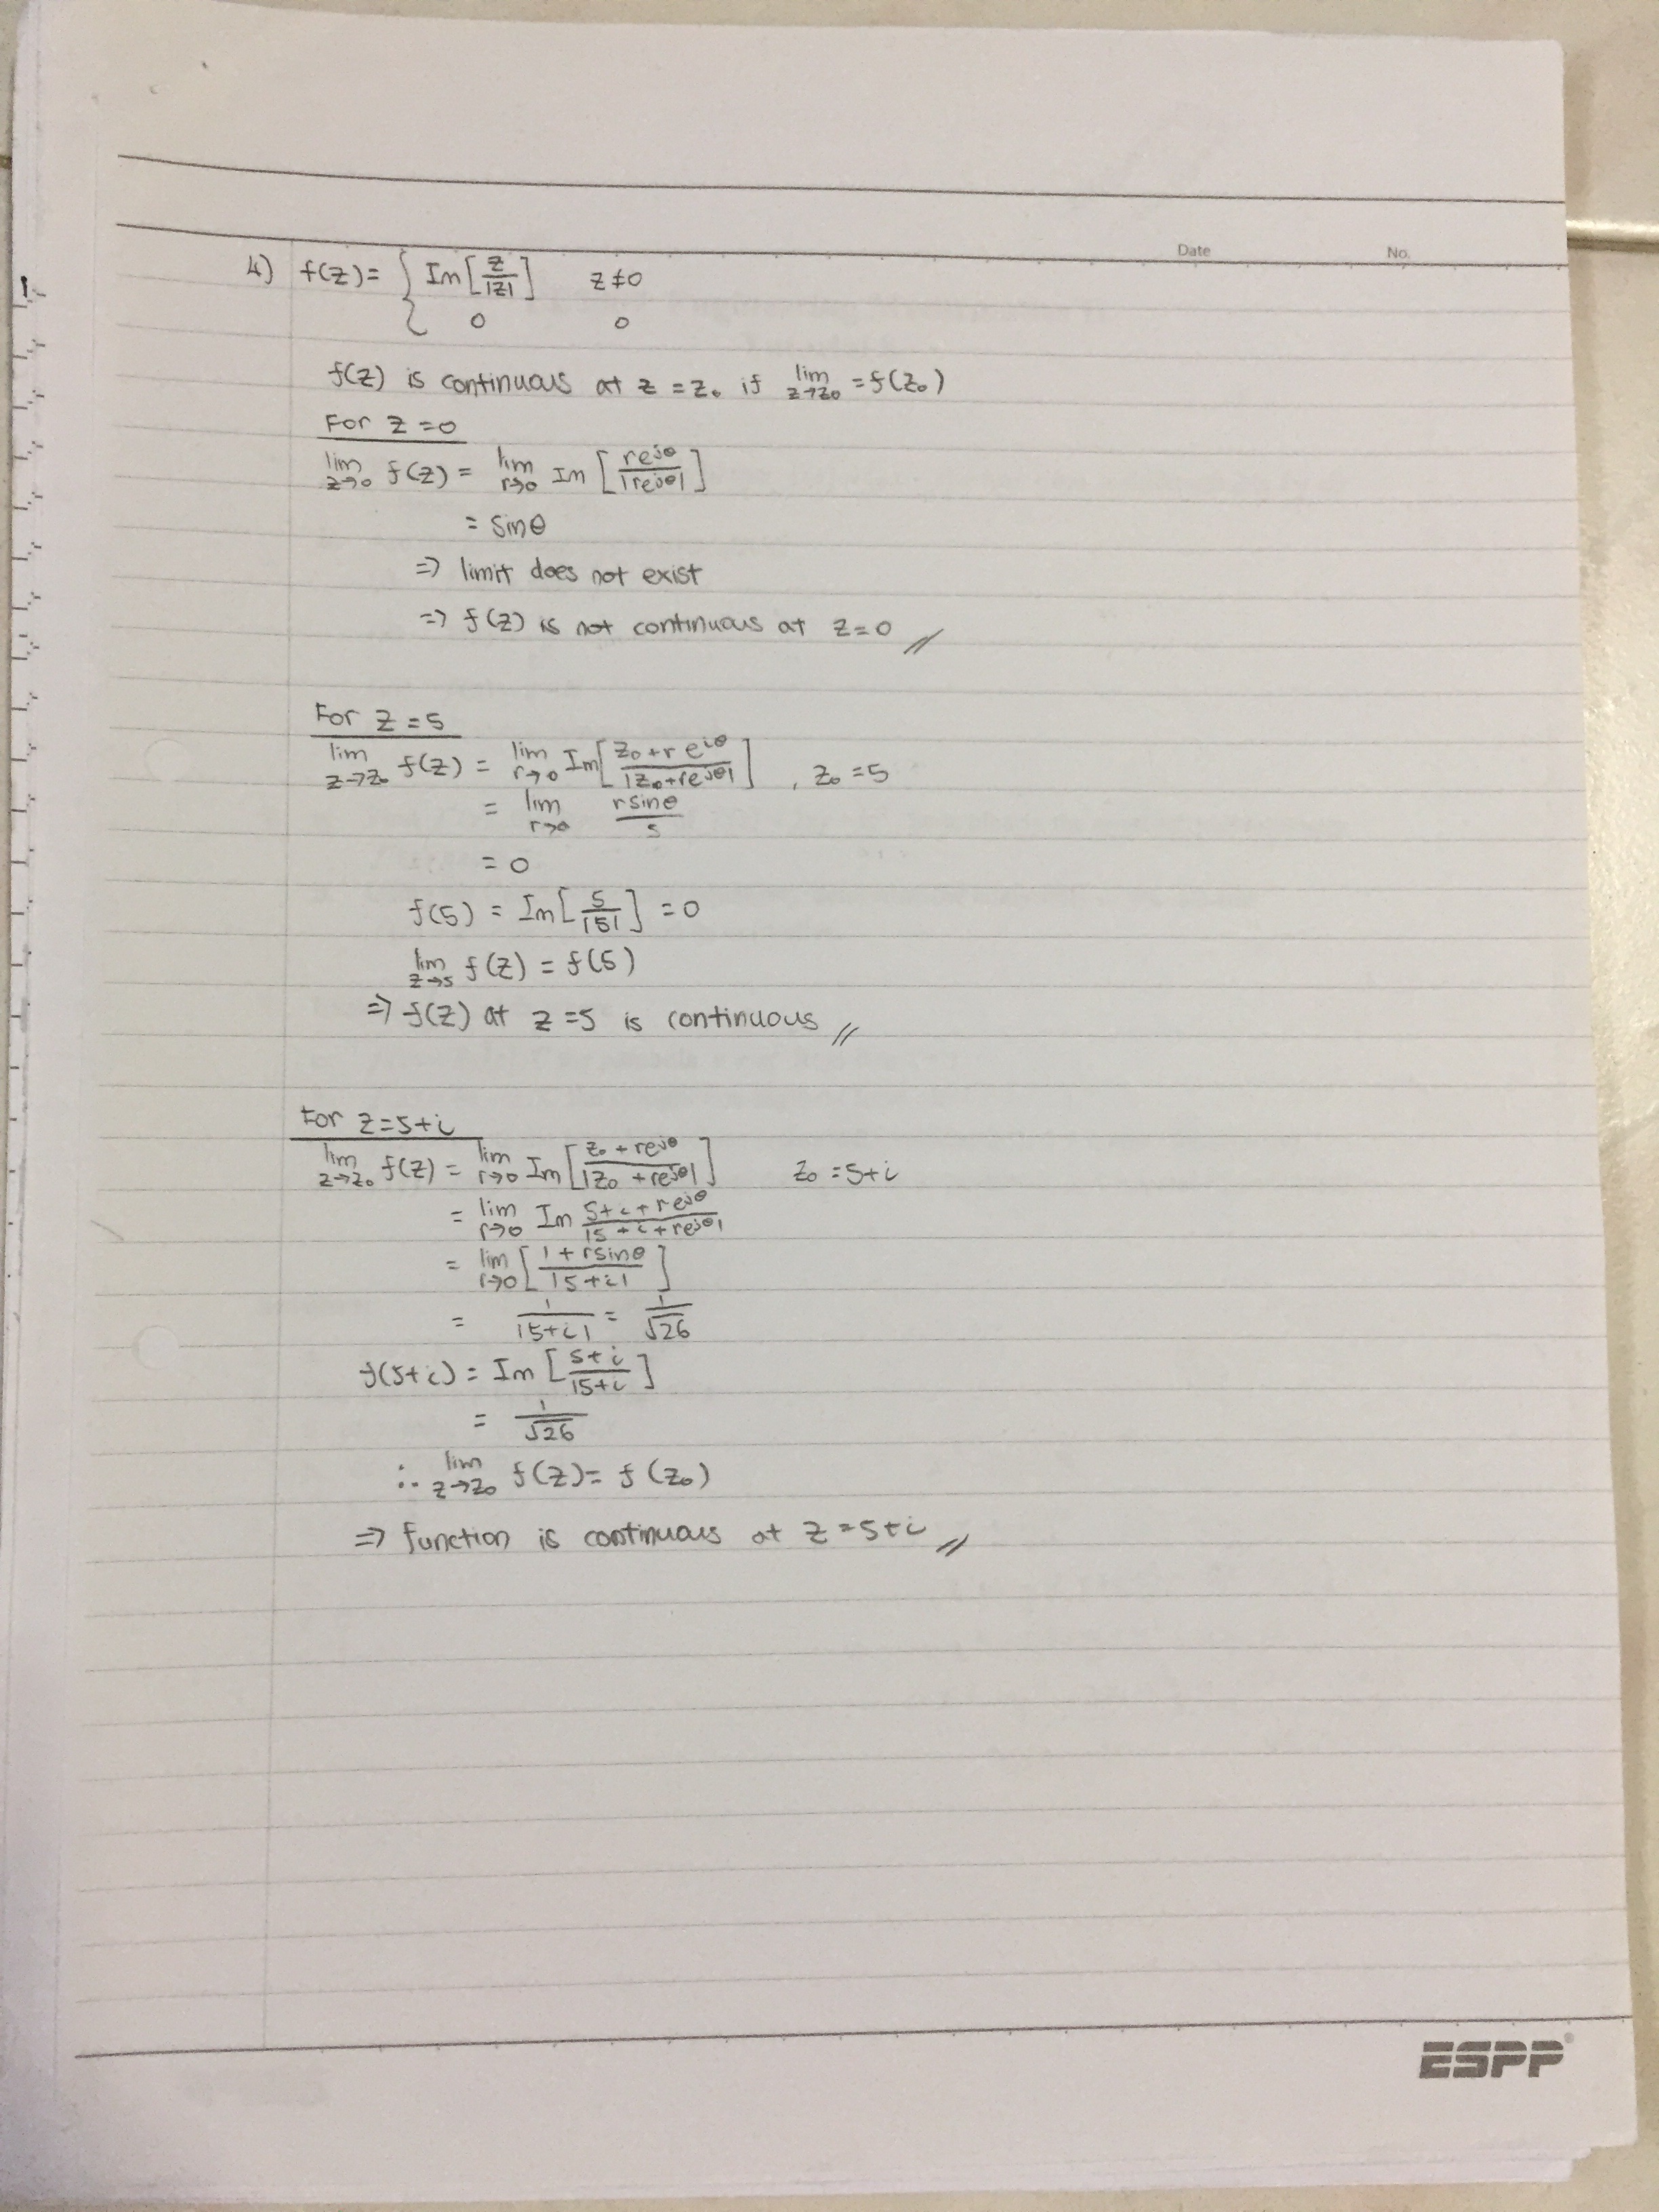 Date No.
4) f(z)= { Im[z/|z|] z≠0
0 0
f(z) is continuous at z = z₀ if lim z→z₀ = f(z₀)
For z=0
lim z→0 f(z) = lim r→0 Im [re^jθ/|re^jθ|]
= sinθ
=> limit does not exist
=> f(z) is not continuous at z=0 //
For z=5
lim z→z₀ f(z) = lim r→0 Im[z₀+re^iθ/|z₀+re^jθ|] , z₀=5
= lim r→0 rsinθ/5
= 0
f(5) = Im[5/|5|] = 0
lim z→5 f(z) = f(5)
=> f(z) at z=5 is continuous //
For z=5+i
lim z→z₀ f(z) = lim r→0 Im[z₀+re^jθ/|z₀+re^jθ|] z₀=5+i
= lim r→0 Im 5+i+re^jθ/|5+i+re^jθ|
= lim r→0 [1+rsinθ/|5+i|]
= 1/|5+i| = 1/√26
f(5+i) = Im [5+i/|5+i]
= 1/√26
∴ lim z→z₀ f(z) = f(z₀)
=> function is continuous at z=5+i //
ESPP®